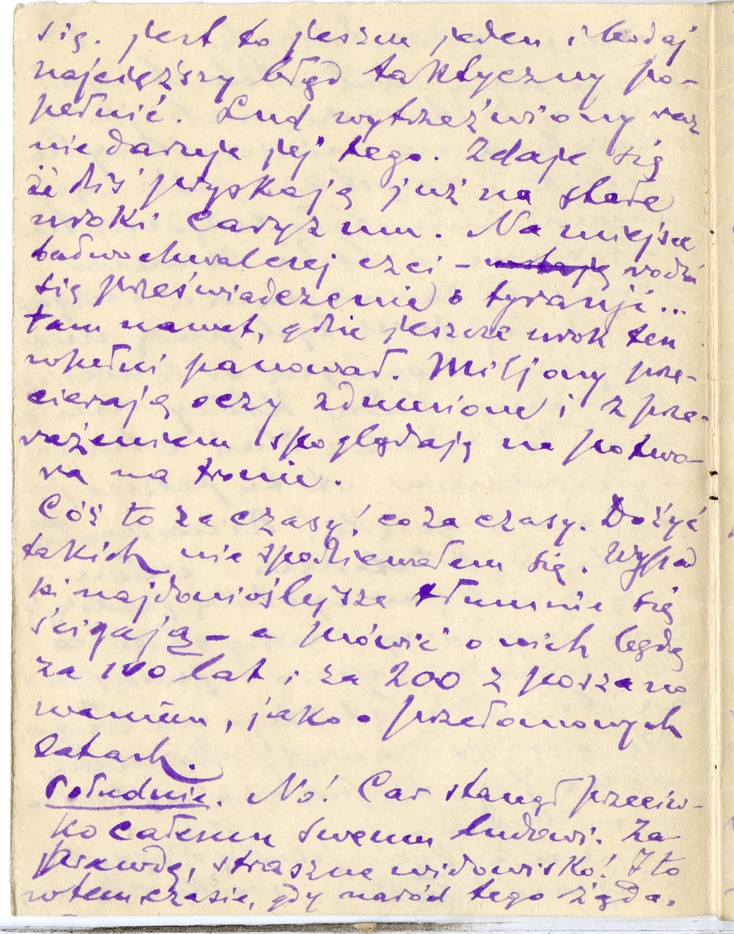 się. Jest to jeszcze jeden i bodaj
najcięższy błąd taktyczny po-
pełnić. Lud wytrzeźwiony raz
nie daruje jej tego. Zdaje się
że dziś pryskają już na stałe
uroki caryzmu. Na miejsce
bałwochwalczej czci – rodzi
się przeświadczenie o tyranji...
tam nawet, gdzie jeszcze urok ten
wpełni panował. Miljony prze-
cierają oczy zdumione i z prze-
rażeniem spoglądają na potwo-
ra na tronie.
Cóż to za czasy, co za czasy. Dożyć
takich nie spodziewałem się. Wypad
ki najdonioślejsze tłumnie się
ścigają – a mówić o nich będą
za 100 lat i za 200 z poszano
waniem, jako o przełomowych
latach.
Południe. No! Car stanął przeciw-
ko całemu swemu ludowi. Za-
prawdę, straszne widowisko! I to
wtem czasie, gdy naród tego żąda,